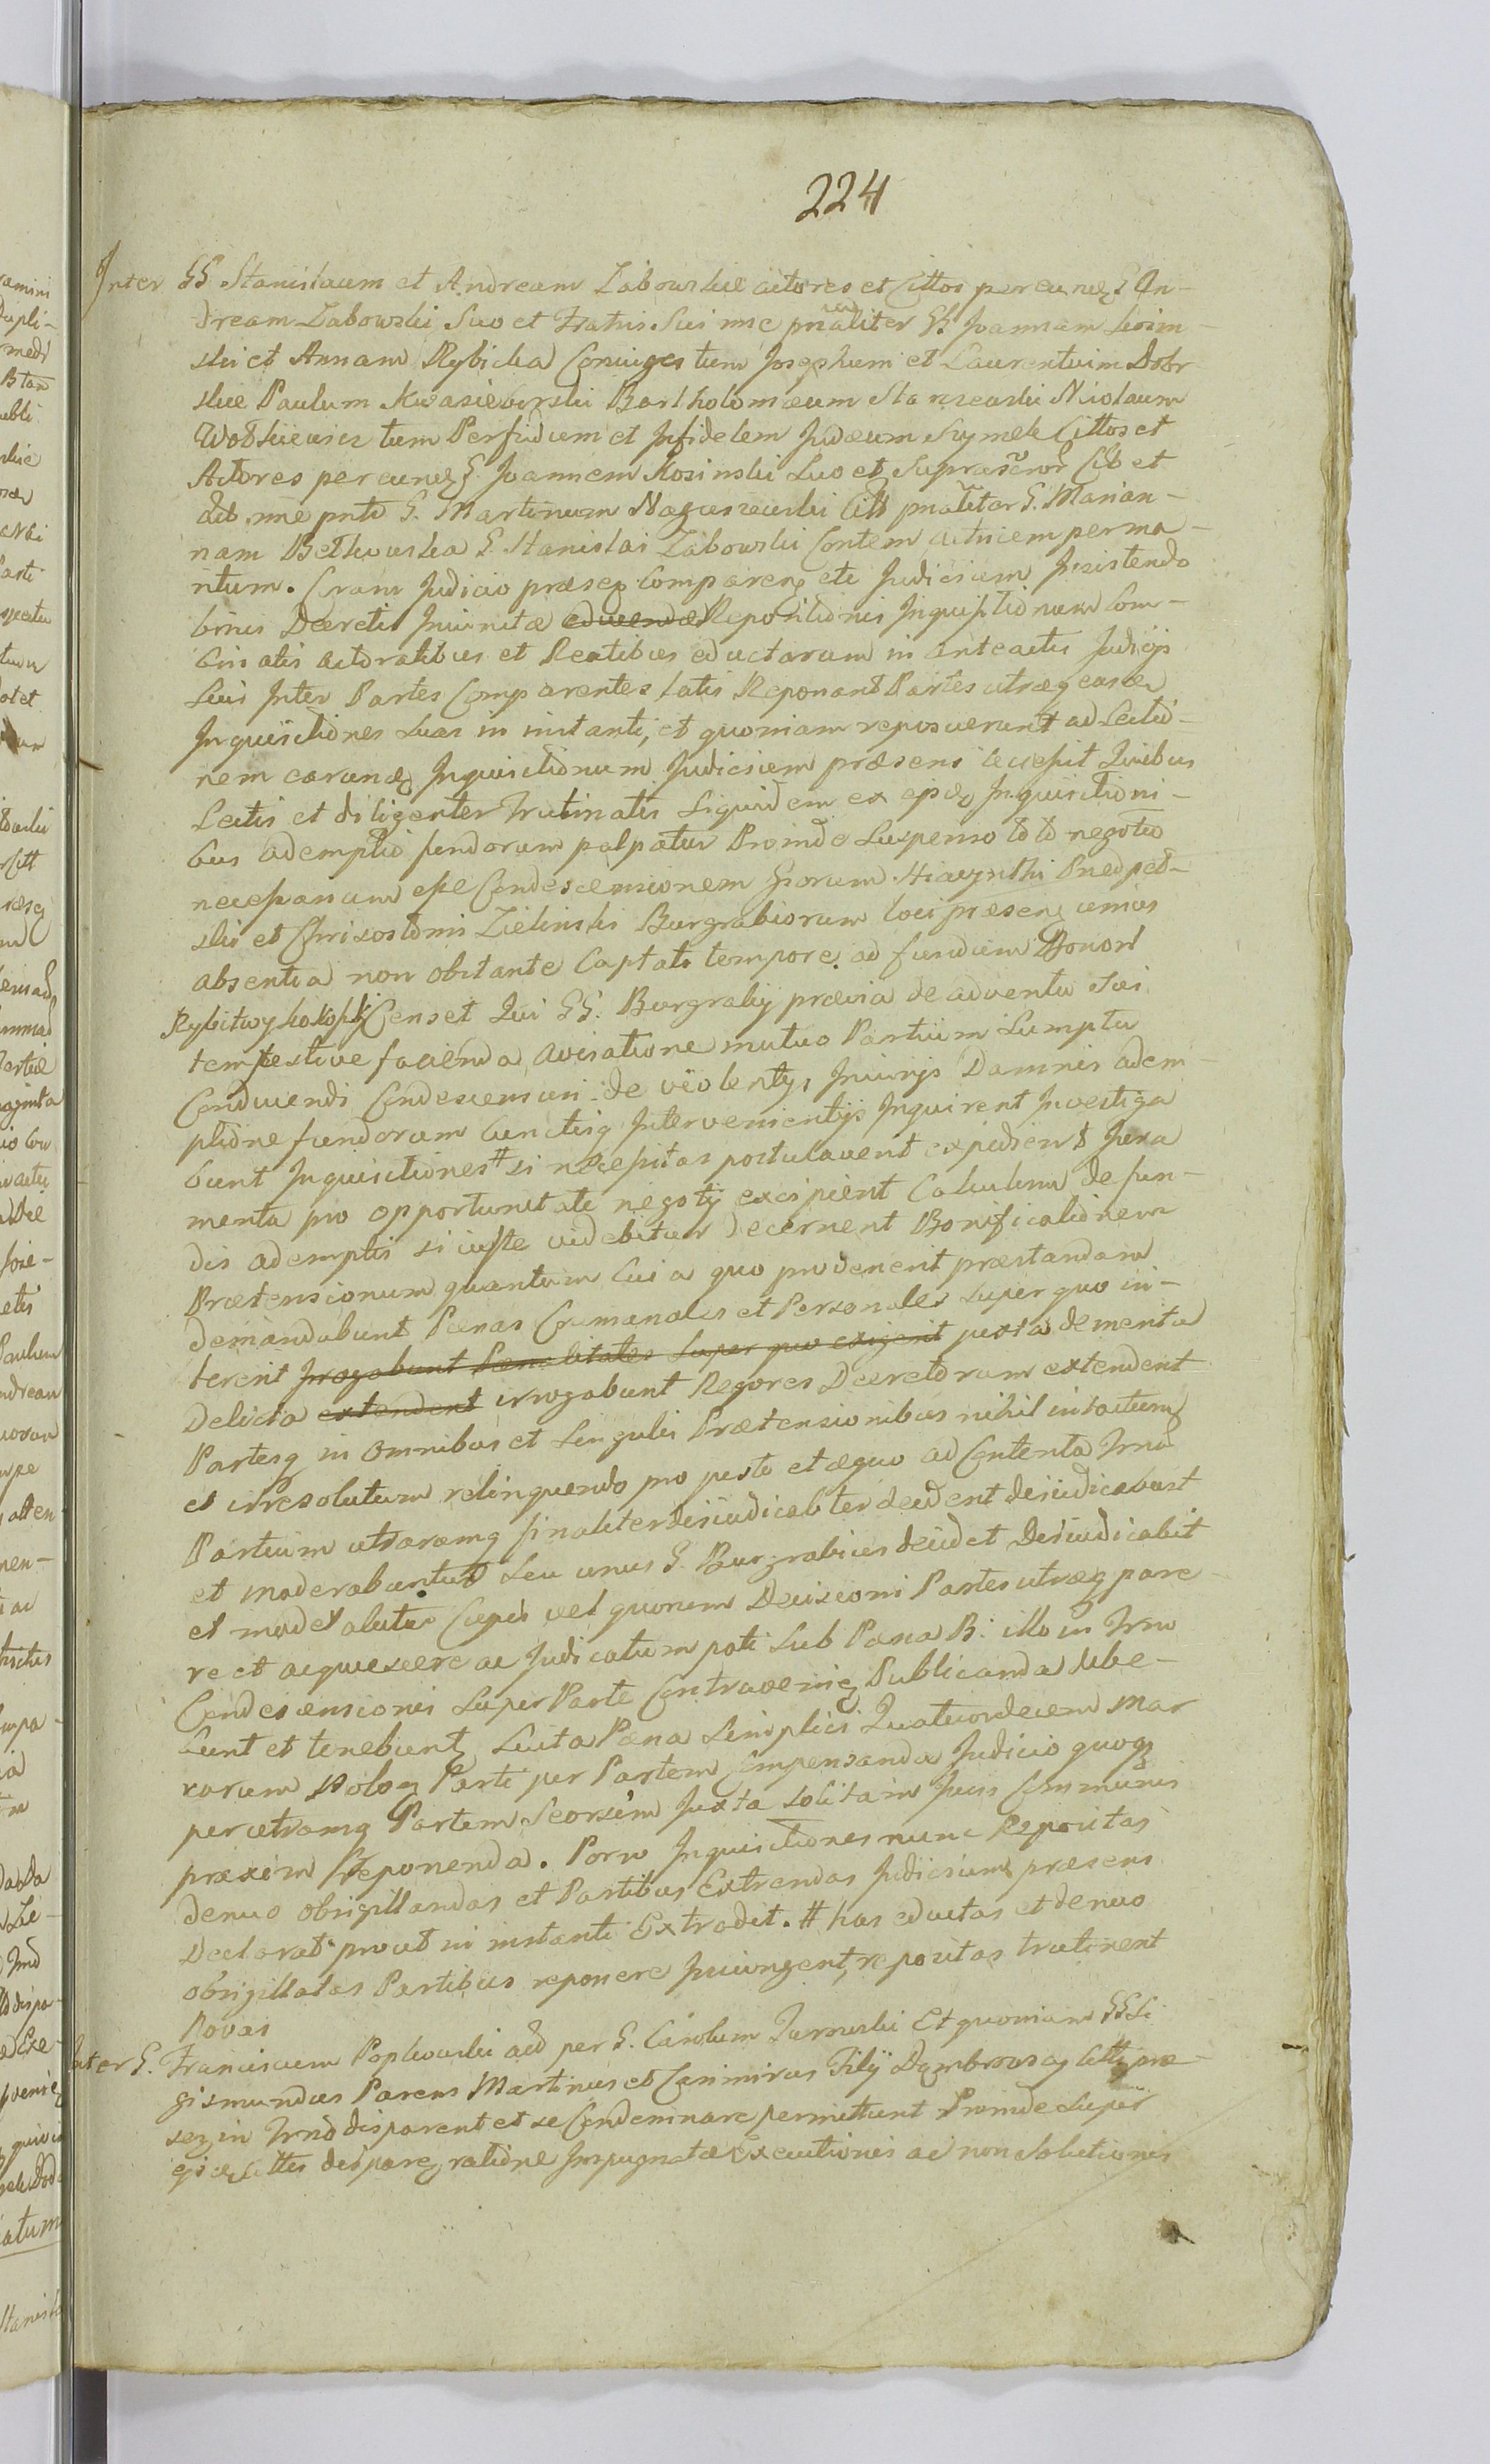 224
Inter GG Stanislaum et Andream Zabowskie actores et Cittos per eundq G. An-
dream Zabowski Suo et Fratris Sui nne pnaliter GG. Joannem Kosin-
ski et Annam Rybicka Coniuges tum Josephum et Laurentium Dobr
skie Paulum Kwasieborski Bartholomæum Staniszewski Nicolaum
Wotkiewicz tum Perfidum et Infidelem Judæum Szymek Cittos et
Actores per eundq G. Joannem Kosinski Suo et Suprascror Citt et
act. nne pnte G. Martinum Naguszewski Citt pnaliter G. Marian-
nam Betkowska G. Stanislai Zabowski Contem actricem per ma-
ritum. Cram Judicio præseq Comparenq etc Judicium Insistendo
binis Decretis Iniunctæ educendæ Repositionis Inquisitionum Com-
binatis actoratibus et Reatibus eductarum in anteactis Judicijs
Suis Inter Partes Comparentes latis Reponant Partes utræq easdem
Inquisitiones Suas in instanti, et quoniam reposuerunt ad Lectio-
nem earundq Inquisitionum Judicium præsens accessit Quibus
Lectis et diligenter trutinatis Siquidem ex ejsdq Inquisitioni-
bus ademptio fundorum palpatur Proinde Suspenso toto negotio
necessariam esse Condescensionem Grorum Hiacynthi
ski et Chrisostomi Zielinski Burgrabiorum loci præsenq unius
absentia non obstante Captato tempore ad fundum Bonor
Rybitwy Censet Qui GG. Burgrabij prævia de adventu Sui
tempestive facienda avisatione mutuo Partium Sumptu
Conducendi Condescensuri de violentijs, Iniurijs Damnis adem-
ptione fundorum Cunctisq Intervenientijs Inquirent Investiga
bunt Inquisitiones # si necessitas postulaverit expedient Jura
menta pro opportunitate negotij excipient Calculum de fun-
dis ademptis si iuste videbitur decernent Bonificationem
Prætensionum quantum Cui a quo provenerit præstandam
demandabunt Pænas Criminales et Personales super quo in-
tererit Irrogabunt Pænalitates Super quo exigerit juxta demerita
Delicta extendent irrogabunt Regores Decretorum extendent
Partesq in omnibus et Singulis Prætensionibus nihil intactum
et irresolutum relinquendo pro justo et æquo ad Contenta Trnor
Partium utrarumq finaliter dijudicabter decident dijudicabunt
et moderabuntur Seu unus G. Burgrabius decidet Dijudicabit
et moderabitur Cujus vel quorum Decisioni Partes utræq pare
re et acquiescere ac Judicatum pati Sub Pæna B: illo in Trno
Condescensionis Super Parte Contravenienq Publicanda debe-
bunt et tenebuntq Secuta Pæna Simplici Quatuordecem Mar
carum Polon Parti per Partem Compensanda Judicio quoq
per utramq Partem Seorsim Juxta Solitam Juris Communis
praxim Reponenda. Porro Inquisitiones nunc Repositas
denuo obsigillandas et Partibus Extrendas Judicium præsens
Declarat prout in instanti Extradit. # has eductas et denuo
obsigillatas Partibus reponere Iniungent, repositas trutinent
Novas
Inter G. Franciscum Poplowski act per G. Carolum Et quoniam GG Si
gismundus Parens Martinus et Casimirus Filij Citti præ-
seq in Trno disparent et se Condemnare permittunt Proinde Super
ejsdq Cittis disparenq ratione Impugnatæ Executionis ac non Solutionis